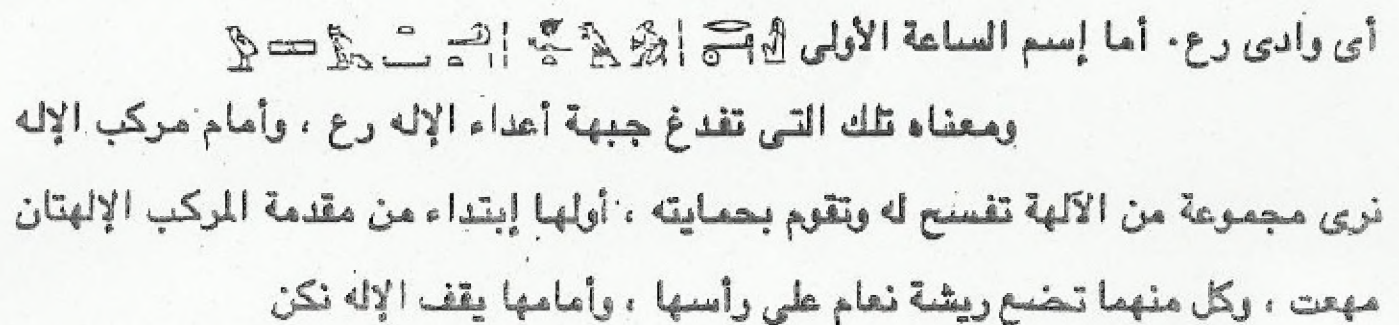 أى وادى رع. أما إسم الساعة الأولى
ومعناه تلك التى تفدغ جبهة أعداء الإله رع ، وأمام مركب الإله
نرى مجموعة من الآلهة تفسح له وتقوم بحمايته ، أولها إبتداء من مقدمة المركب الإلهتان
مهعت ، وكل منهما تضع ريشة نعام على رأسها ، وأمامها يقف الإله نكن